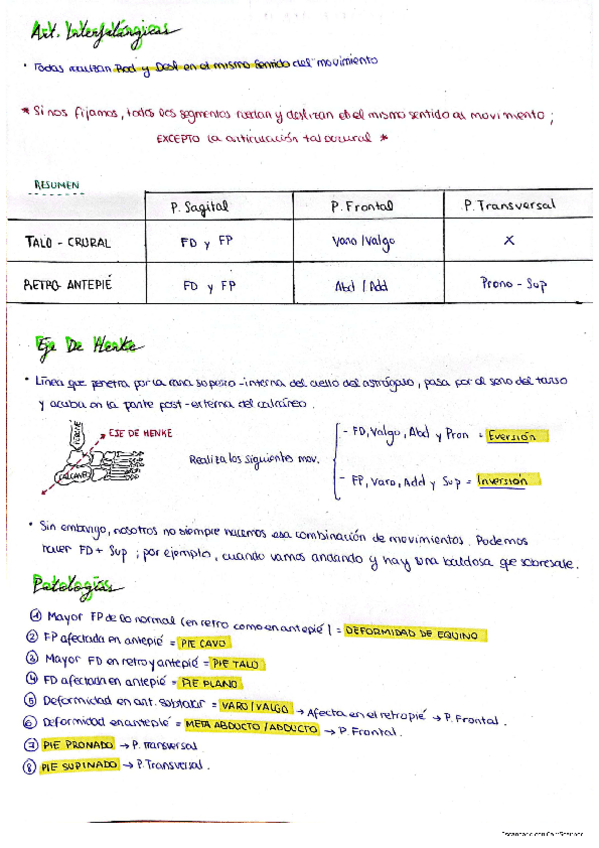 Art. Interfalángicas
· Todas realizan Rod y Desl en el mismo sentido del movimiento
* Si nos fijamos, todos los segmentos ruedan y deslizan en el mismo sentido al movimiento;
EXCEPTO la articulación talocrural *
RESUMEN
P. Sagital P. Frontal P. Transversal
TALO - CRURAL FD y FP Varo/Valgo X
RETRO- ANTEPIÉ FD y FP Abd / Add Prono - Sup
Eje De Henke
· Línea que penetra por la cara supero-interna del cuello del astrágalo, pasa por el seno del tarso
y acaba en la parte post-externa del calcáneo.
EJE DE HENKE
CALCANEO
Realiza los siguientes mov.
- FD, Valgo, Abd y Pron = Eversión
- FP, Varo, Add y Sup = Inversión
· Sin embargo, nosotros no siempre hacemos esa combinación de movimientos. Podemos
hacer FD + Sup ; por ejemplo, cuando vamos andando y hay una baldosa que sobresale.
Patologías
① Mayor FP de lo normal (en retro como en antepié) = DEFORMIDAD DE EQUINO
② FP afectada en antepié = PIE CAVO
③ Mayor FD en retro y antepié = PIE TALO
④ FD afectada en antepié = PIE PLANO
⑤ Deformidad en art. subtalar = VARO/VALGO → Afecta en el retropié → P. Frontal.
⑥ Deformidad en antepié = META ABDUCTO /ADDUCTO → P. Frontal.
⑦ PIE PRONADO → P. Transversal
⑧ PIE SUPINADO → P. Transversal.
Escaneado con CamScanner